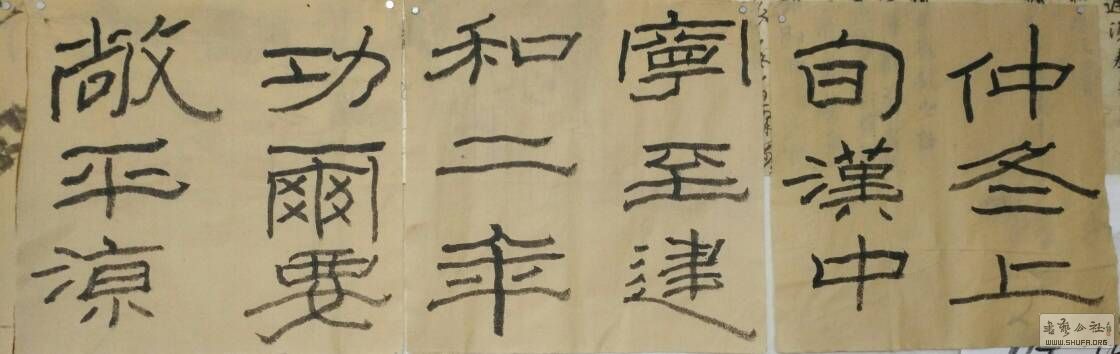 仲冬上
旬漢中
寧至建
和二年
功爾要
敞平涼
書藝公社
WWW.SHUFA.ORG